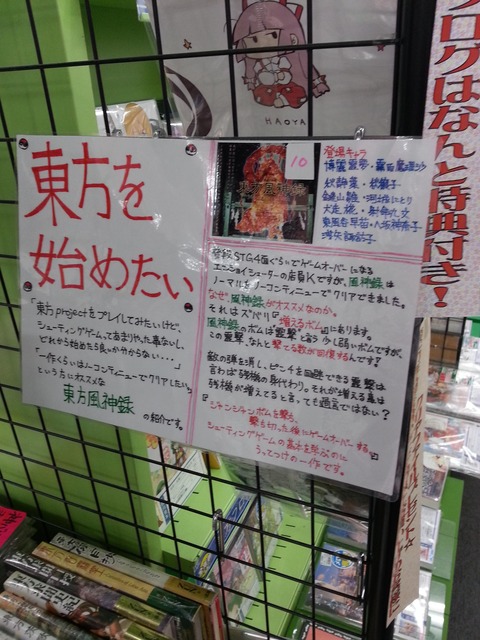 東方を
始めたい
「東方projectをプレイしてみたいけど、
シューティングゲームってあまりやった事ないし、
どれから始めたら良いか分からない・・・」
「一作くらいはノーコンティニューでクリアしたい」
という方にオススメな
東方風神録
の紹介です。
10
登場キャラ
博麗霊夢・霧雨魔理沙
秋静葉・秋穣子
鍵山雛・河城にとり
犬走椛・射命丸文
東風谷早苗・八坂神奈子
洩矢諏訪子
登録STG4面ぐらいでゲームオーバーになる
エンジョイシューターの店員Kですが、風神録は
ノーマルをノーコンティニューでクリアできました。
なぜ、風神録がオススメなのか。
それはズバリ『増えるボム』にあります。
風神録のボムは「霊撃」と言う少し弱いボムですが、
この霊撃、なんと撃てる数が回復するんです!
敵の弾を消し、ピンチを回避できる霊撃は
言わば残機の身代わり。それが増える事は
残機が増えてると言っても過言ではない?
『ジャンジャンボムを撃ち、
撃ち切った後にゲームオーバーする』
シューティングゲームの基本を学ぶのに
うってつけの一作です。
HAOYA
ログはなんと特典付き!